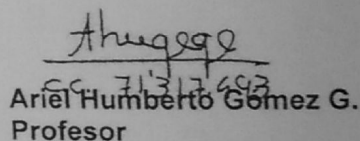 Ahugege
cc 71'317.643
Ariel Humberto Gómez G.
Profesor